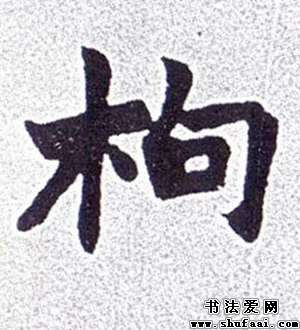 枸
书法爱网
www.shufaai.com